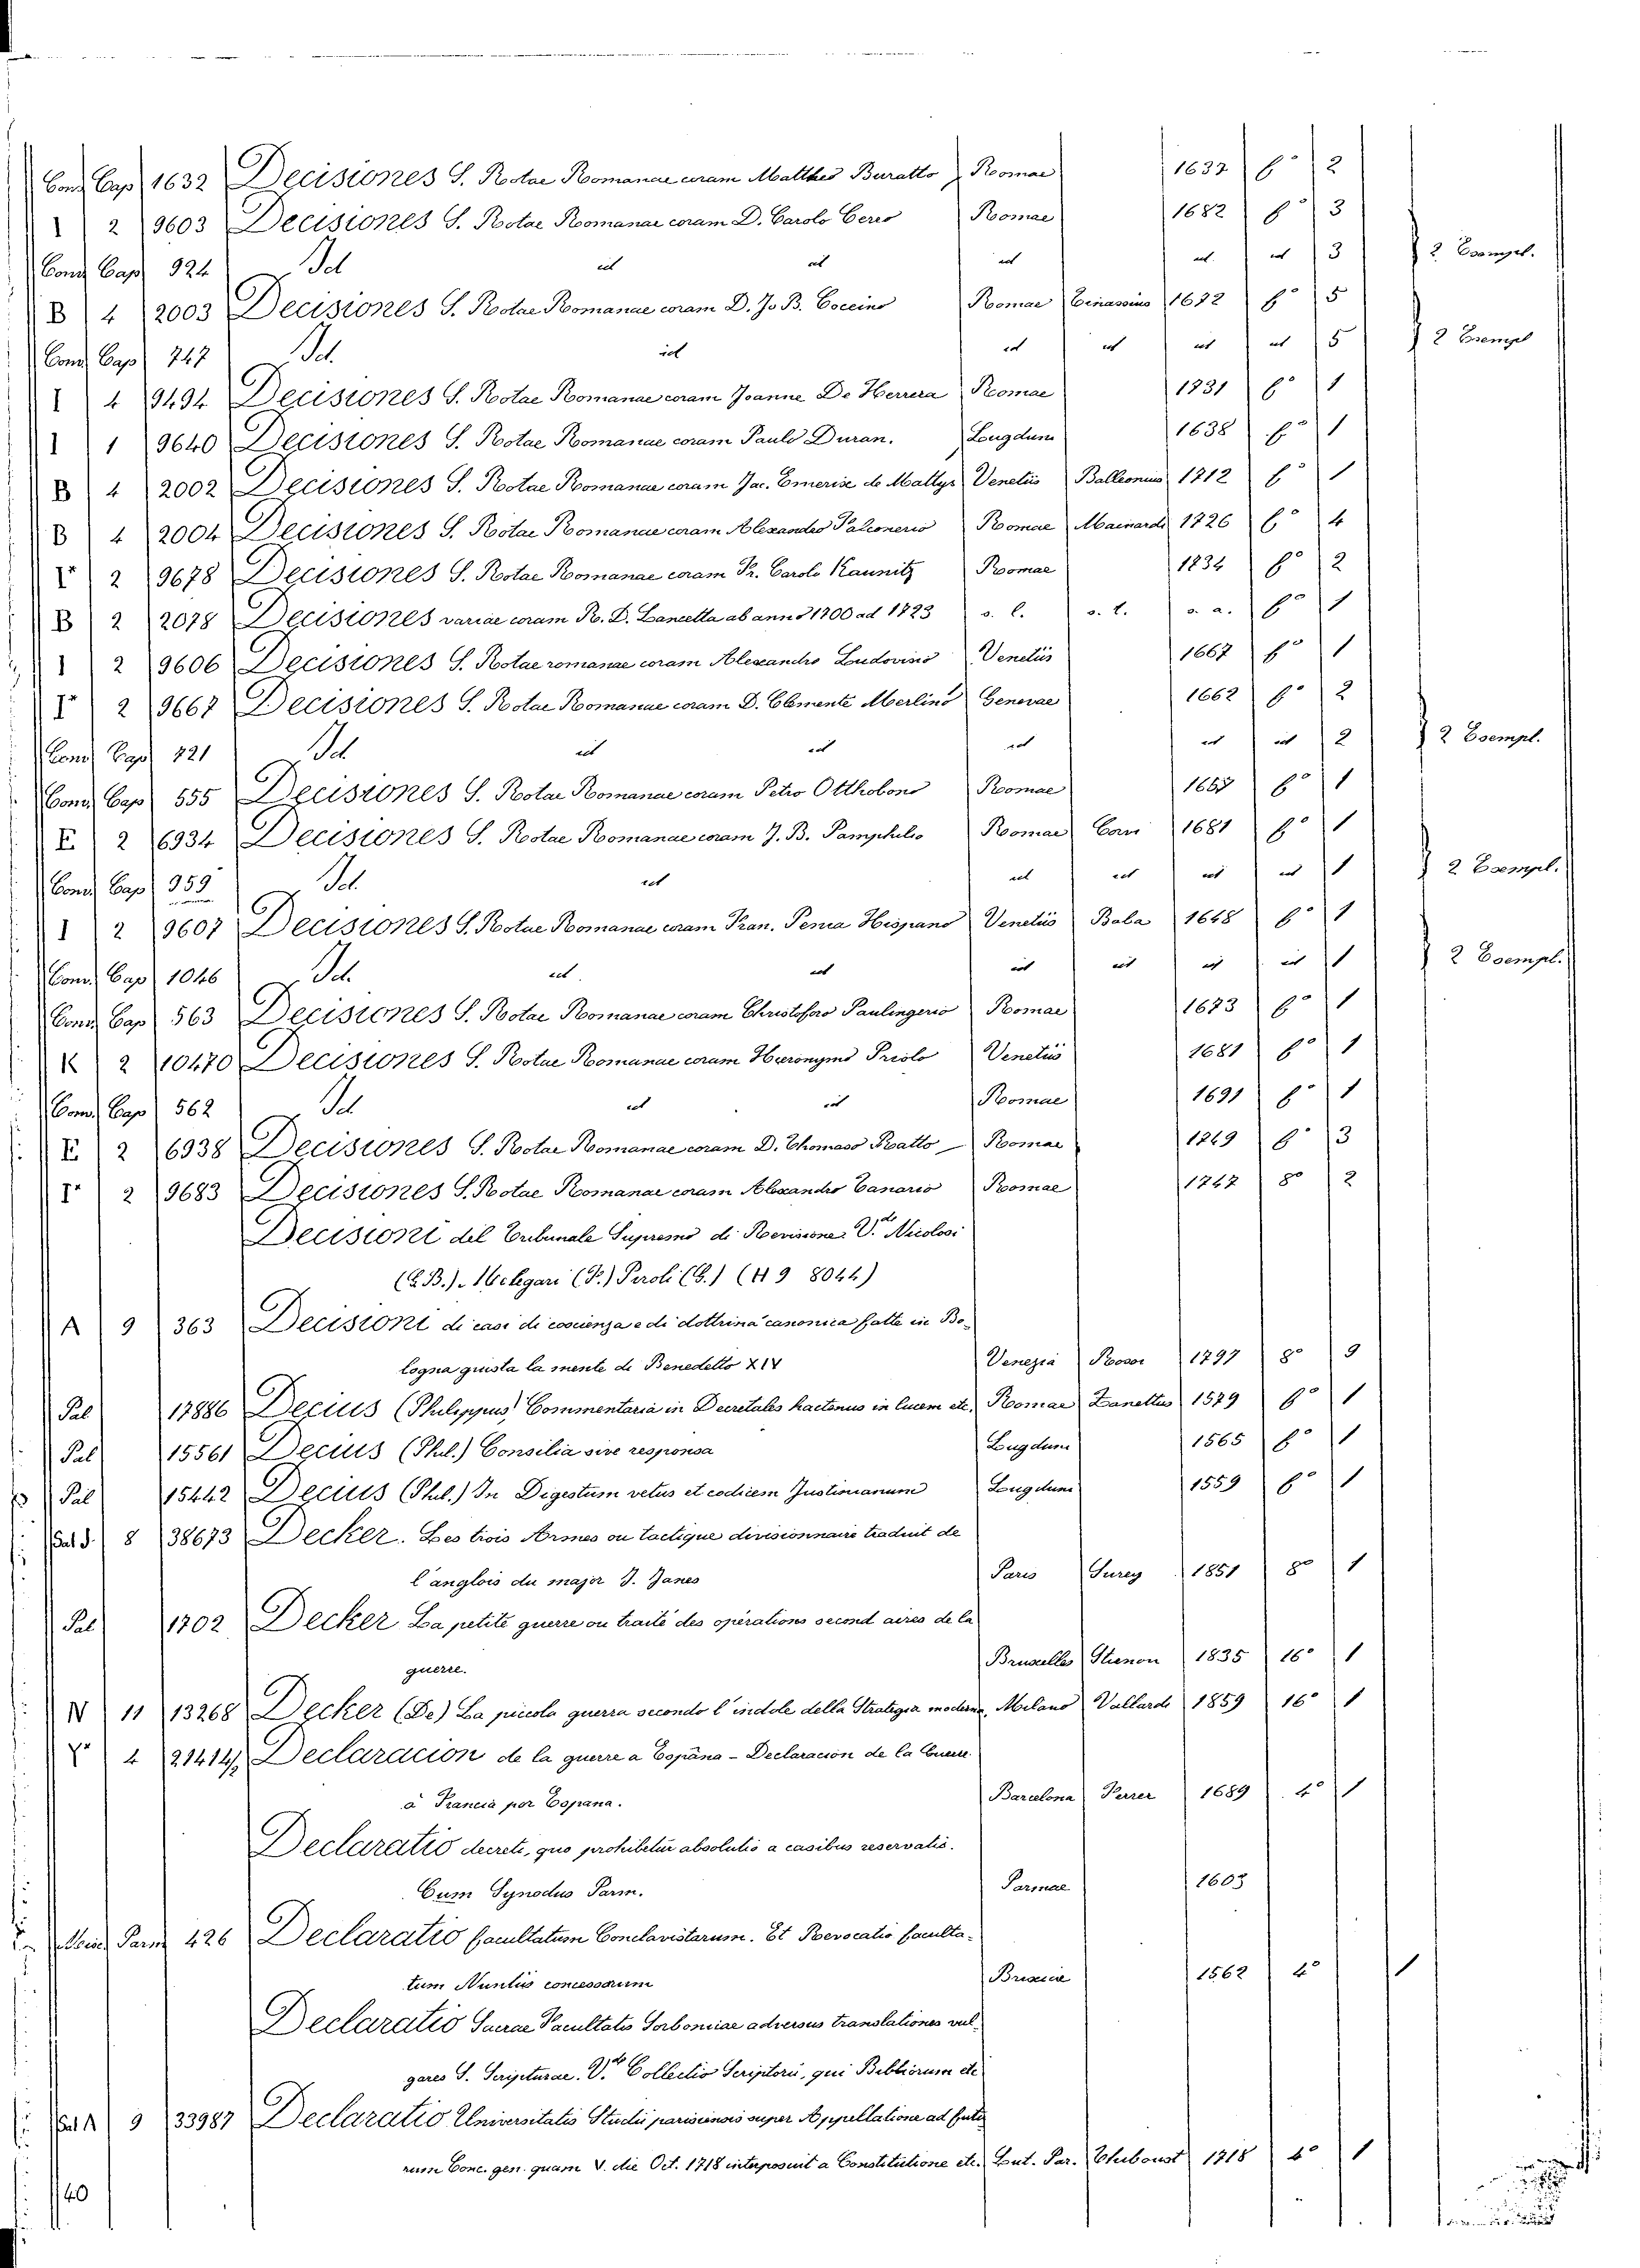 Cons Cap 1632 Decisiones S. Rotae Romanae coram Mattheo Buratto Romae 1637 fo 2
I 2 9603 Decisiones S. Rotae Romanae coram D. Carolo Cerro Romae 1682 fo 3
Cons Cap 924 Id id id id id id 3 2 Esempl.
B 4 2003 Decisiones S. Rotae Romanae coram D. Jo B. Coccino Romae 1672 fo 5
Cons Cap 747 Id. id id id id id 5 2 Esempl
I 4 9494 Decisiones S. Rotae Romanae coram Joanne De Herrera Romae 1731 fo 1
I 1 9640 Decisiones S. Rotae Romanae coram Paulo Duran. Lougduni 1638 fo 1
B 4 2002 Decisiones S. Rotae Romanae coram Jac. Emerix de Mattys Venetiis Balleonius 1712 fo 1
B 4 2004 Decisiones S. Rotae Romanae coram Alexandro Falconerio Romae Mainardi 1726 fo 4
I* 2 9678 Decisiones S. Rotae Romanae coram Fr. Carolo Kaunitz Romae 1734 fo 2
B 2 2078 Decisiones variae coram R. D. Lancetta ab anno 1700 ad 1723 s. l. s. t. s. a. fo 1
I 2 9606 Decisiones S. Rotae romanae coram Alexandro Ludovisio Venetiis 1667 fo 1
I* 2 9667 Decisiones S. Rotae Romanae coram D. Clemente Merlino Genevae 1662 fo 2
Cons Cap 721 Id. id id id id id 2 2 Esempl.
Cons Cap 555 Decisiones S. Rotae Romanae coram Petro Otthobono Romae 1657 fo 1
E 2 6934 Decisiones S. Rotae Romanae coram J. B. Pamphilio Romae Corvi 1681 fo 1
Cons Cap 959 Id. id id id id id 1 2 Esempl.
I 2 9607 Decisiones S. Rotae Romanae coram Fran. Penia Hispano Venetiis Baba 1648 fo 1
Cons Cap 1046 Id. id. id id id id id 1 2 Esempl.
Cons Cap 563 Decisiones S. Rotae Romanae coram Christoforo Paulingerio Romae 1673 fo 1
K 2 10470 Decisiones S. Rotae Romanae coram Hieronymo Priolo Venetiis 1681 fo 1
Cons Cap 562 Id id id Romae 1691 fo 1
E 2 6938 Decisiones S. Rotae Romanae coram D. Thomaso Ratto Romae 1749 fo 3
I* 2 9683 Decisiones S. Rotae Romanae coram Alexandro Canario Romae 1747 8o 2
Decisioni del Tribunale Supremo di Revisione. Nicolosi
(G. B.) - Melegari (F.) Piroli (G.) (H 9 8044)
A 9 363 Decisioni di casi di coscienza e di dottrina canonica fatte in Bo-
logna giusta la mente di Benedetto XIV Venezia 1797 8o 9
Pal 17886 Decius (Philippus) Commentaria in Decretales hactenus in lucem etc. Romae Zanettus 1579 fo 1
Pal 15561 Decius (Phil.) Consilia sive responsa Lugduni 1565 fo 1
Pal 15442 Decius (Phil.) In Digestum vetus et codicem Justinianum Lougduni 1559 fo 1
Pal d. 8 38673 Decker. Les trois Armes ou tactique divisionnaire traduit de
l'anglois du major J. Janes Paris 1851 8o 1
Pal 1702 Decker La petite guerre ou traité des opérations second aires de la
guerre. Bruxelles 1835 16o 1
N 11 13268 Decker (De) La piccola guerra secondo l'indole della Strategia moderna. Milano Vallardi 1859 16o 1
4 21414/ Declaracion de la guerre a España - Declaracion de la Guerre
à Francia por Espana. Barcelona Ferrer 1689 4o 1
Declaratio decreti, quo prohibetur absolutio a casibus reservatis.
Cum Synodus Parm. Parmae 1603
Parm 426 Declaratio facultatum Conclavistarum. Et Revocatio faculta-
tum Nuntiis concessarum Brixiae 1562 4o 1
Declaratio Sacrae Facultatis Sorbonicae adversus translationes vul-
gares S. Scripturae. Collectio Scriptorū, qui Bibliorum etc
Pal A 9 33987 Declaratio Universitatis Studii parisiensis super Appellatione ad futu-
rum Conc. gen. quam V. die Oct. 1718 interposuit a Constitutione etc. Lut. Par. Thiboust 1718 4o 1
140